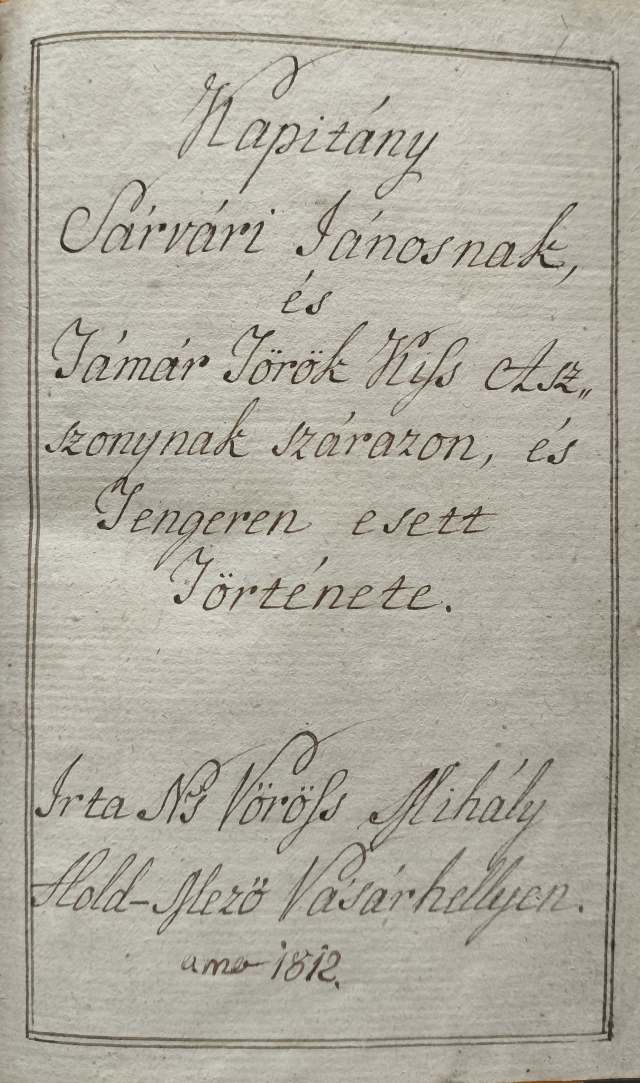 Kapitány
Sárvári Jánosnak,
és
Támár Török Kiss Asz„
szonynak szárazon, és
Tengeren esett
Története.
Irta Ns Vöröss Mihály
Hold-Mező Vásárhellyen.
anno 1812.